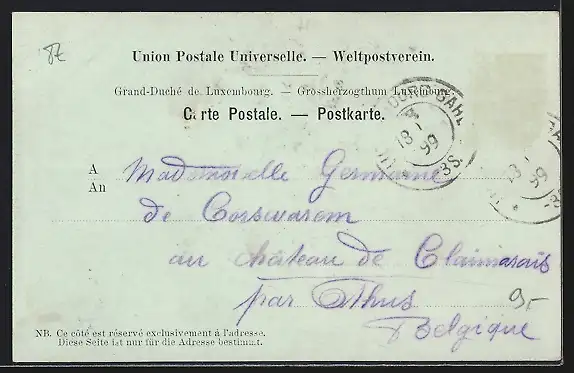 Union Postale Universelle. — Weltpostverein.
Grand-Duché de Luxembourg. — Grossherzogthum Luxembourg.
Carte Postale. — Postkarte.
A Mademoiselle Germaine
An
de Corswarem
au château de Clairmarais
par Athus
9,-
Belgique
NB. Ce côté est réservé exclusivement à l'adresse.
Diese Seite ist nur für die Adresse bestimmt.